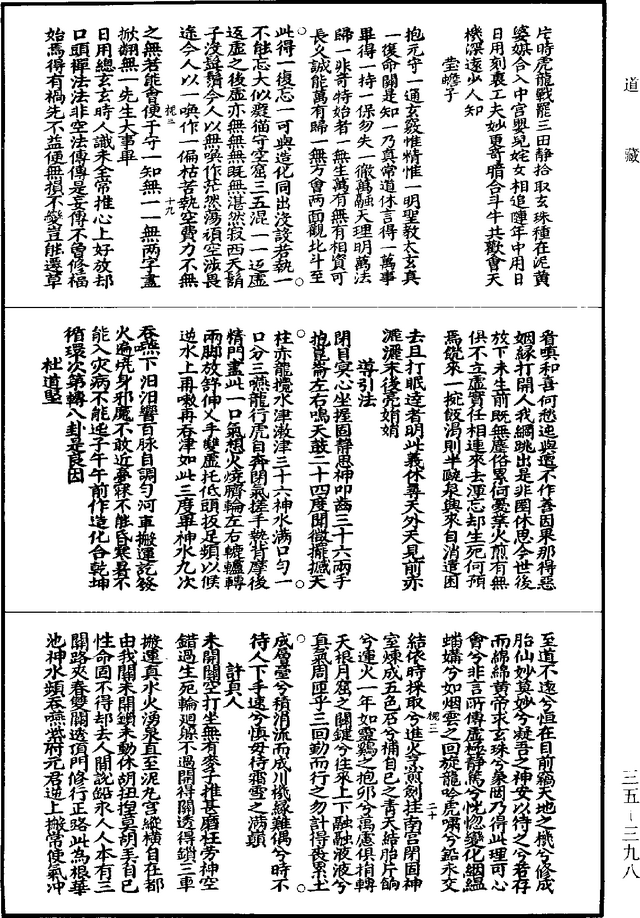 道藏
片時虎龍戰罷三田靜拾取玄珠種在泥黃
婆媒合入中宮嬰兒姹女相追隨年中用日
日用刻裏工夫妙更奇晴合斗牛共歡會天
機深遠少人知
瑩蟾子
抱元守一通玄竅惟精惟一明聖教太玄真
一復命關是知一乃真常道休言得一萬事
畢得一持一保勿失一徹萬融天理明萬法
歸一非奇特始者一無生萬有無有相資可
長久誠能萬有歸一無方會兩面觀北斗至
此得一復忘一可與造化同出沒設若執一
不能忘大似癡猫守空窟三五混一一返虛
返虛之後虛亦無無無既無湛然寂西天鬍
子沒髭鬚今人以無喚作茫然蕩頑空涉畏
途今人以一喚作一偏枯苦執空費力不無
之無若能會便于守一知無一一無兩字盡
掀翻無一先生大事畢
日用總玄玄時人識未全常推心上好放却
口頭禪法法非空法傳傳是妄傳不曾修福
始焉得有禍先不益便無損不變豈能遷草
看嗔和喜何愁迍與邅不作善因果那得惡
姻緣打開人我網跳出是非圈休思今世後
放下未生前既無塵俗累何憂業火煎有無
俱不立虛實任相連來去渾忘却生死何預
焉饑來一掬飯渴則半甌泉興來自消遣困
去且打眠達者明此義休尋天外天見前赤
洒灑末後亮娋娋
導引法
閉目冥心坐握固靜思神叩齒三十六兩手
抱崑崙左右鳴天鼓二十四度聞微擺撼天
柱赤龍攪水津漱津三十六神水滿口勻一
口分三嚥龍行虎自奔閉氣搓手熱背摩後
精門盡此一口氣想火燒臍輪左右轆轤轉
兩脚放舒伸叉手雙虛托低頭扳足頻以候
逆水上再嗽再吞津如此三度畢神水九次
吞嚥下汩汩響百脉自調勻河車搬運訖發
火遍燒身邪魔不敢近夢寐不能昏寒暑不
能入灾病不能迍子午午前作造化合乾坤
循環次第轉八卦是良因
杜道堅
至道不遠兮恒在目前竊天地之機兮修成
胎仙妙莫妙兮凝吾之神安以待之兮若存
而綿綿黃帝求玄珠兮象罔乃得此理可心
會兮非言所傳虛極靜篤兮恍惚變化絪縕
蟠媾兮如烟雲之回旋龍吟虎嘯兮鉛汞交
結依時採取兮進火烹煎劍挂南宮閉固神
室煉成五色石兮補自己之青天結胎片餉
兮運火一年如靈鷄之抱卵兮萬慮俱捐轉
天根月窟之關鍵兮往來上下融融液液兮
真氣周匝乎三回勤而行之勿計得喪累土
成層臺兮積涓流而成川機緣難偶兮時不
待人下手速兮慎毋待霜雪之滿顛
許真人
未開關空打坐無有麥子推甚磨枉勞神空
錯過生死輪迴躲不過開得關透得鎖三車
搬運真水火湧泉直至泥丸宮縱橫自在都
由我關未開鎖未動休胡扭捏莫胡弄自已
性命固不得却去人間說鉛汞人人本有三
關路夾脊雙關透頂門修行正路此為根華
池神水頻吞嚥紫府元君逆上搬常使氣冲
三五-三九八